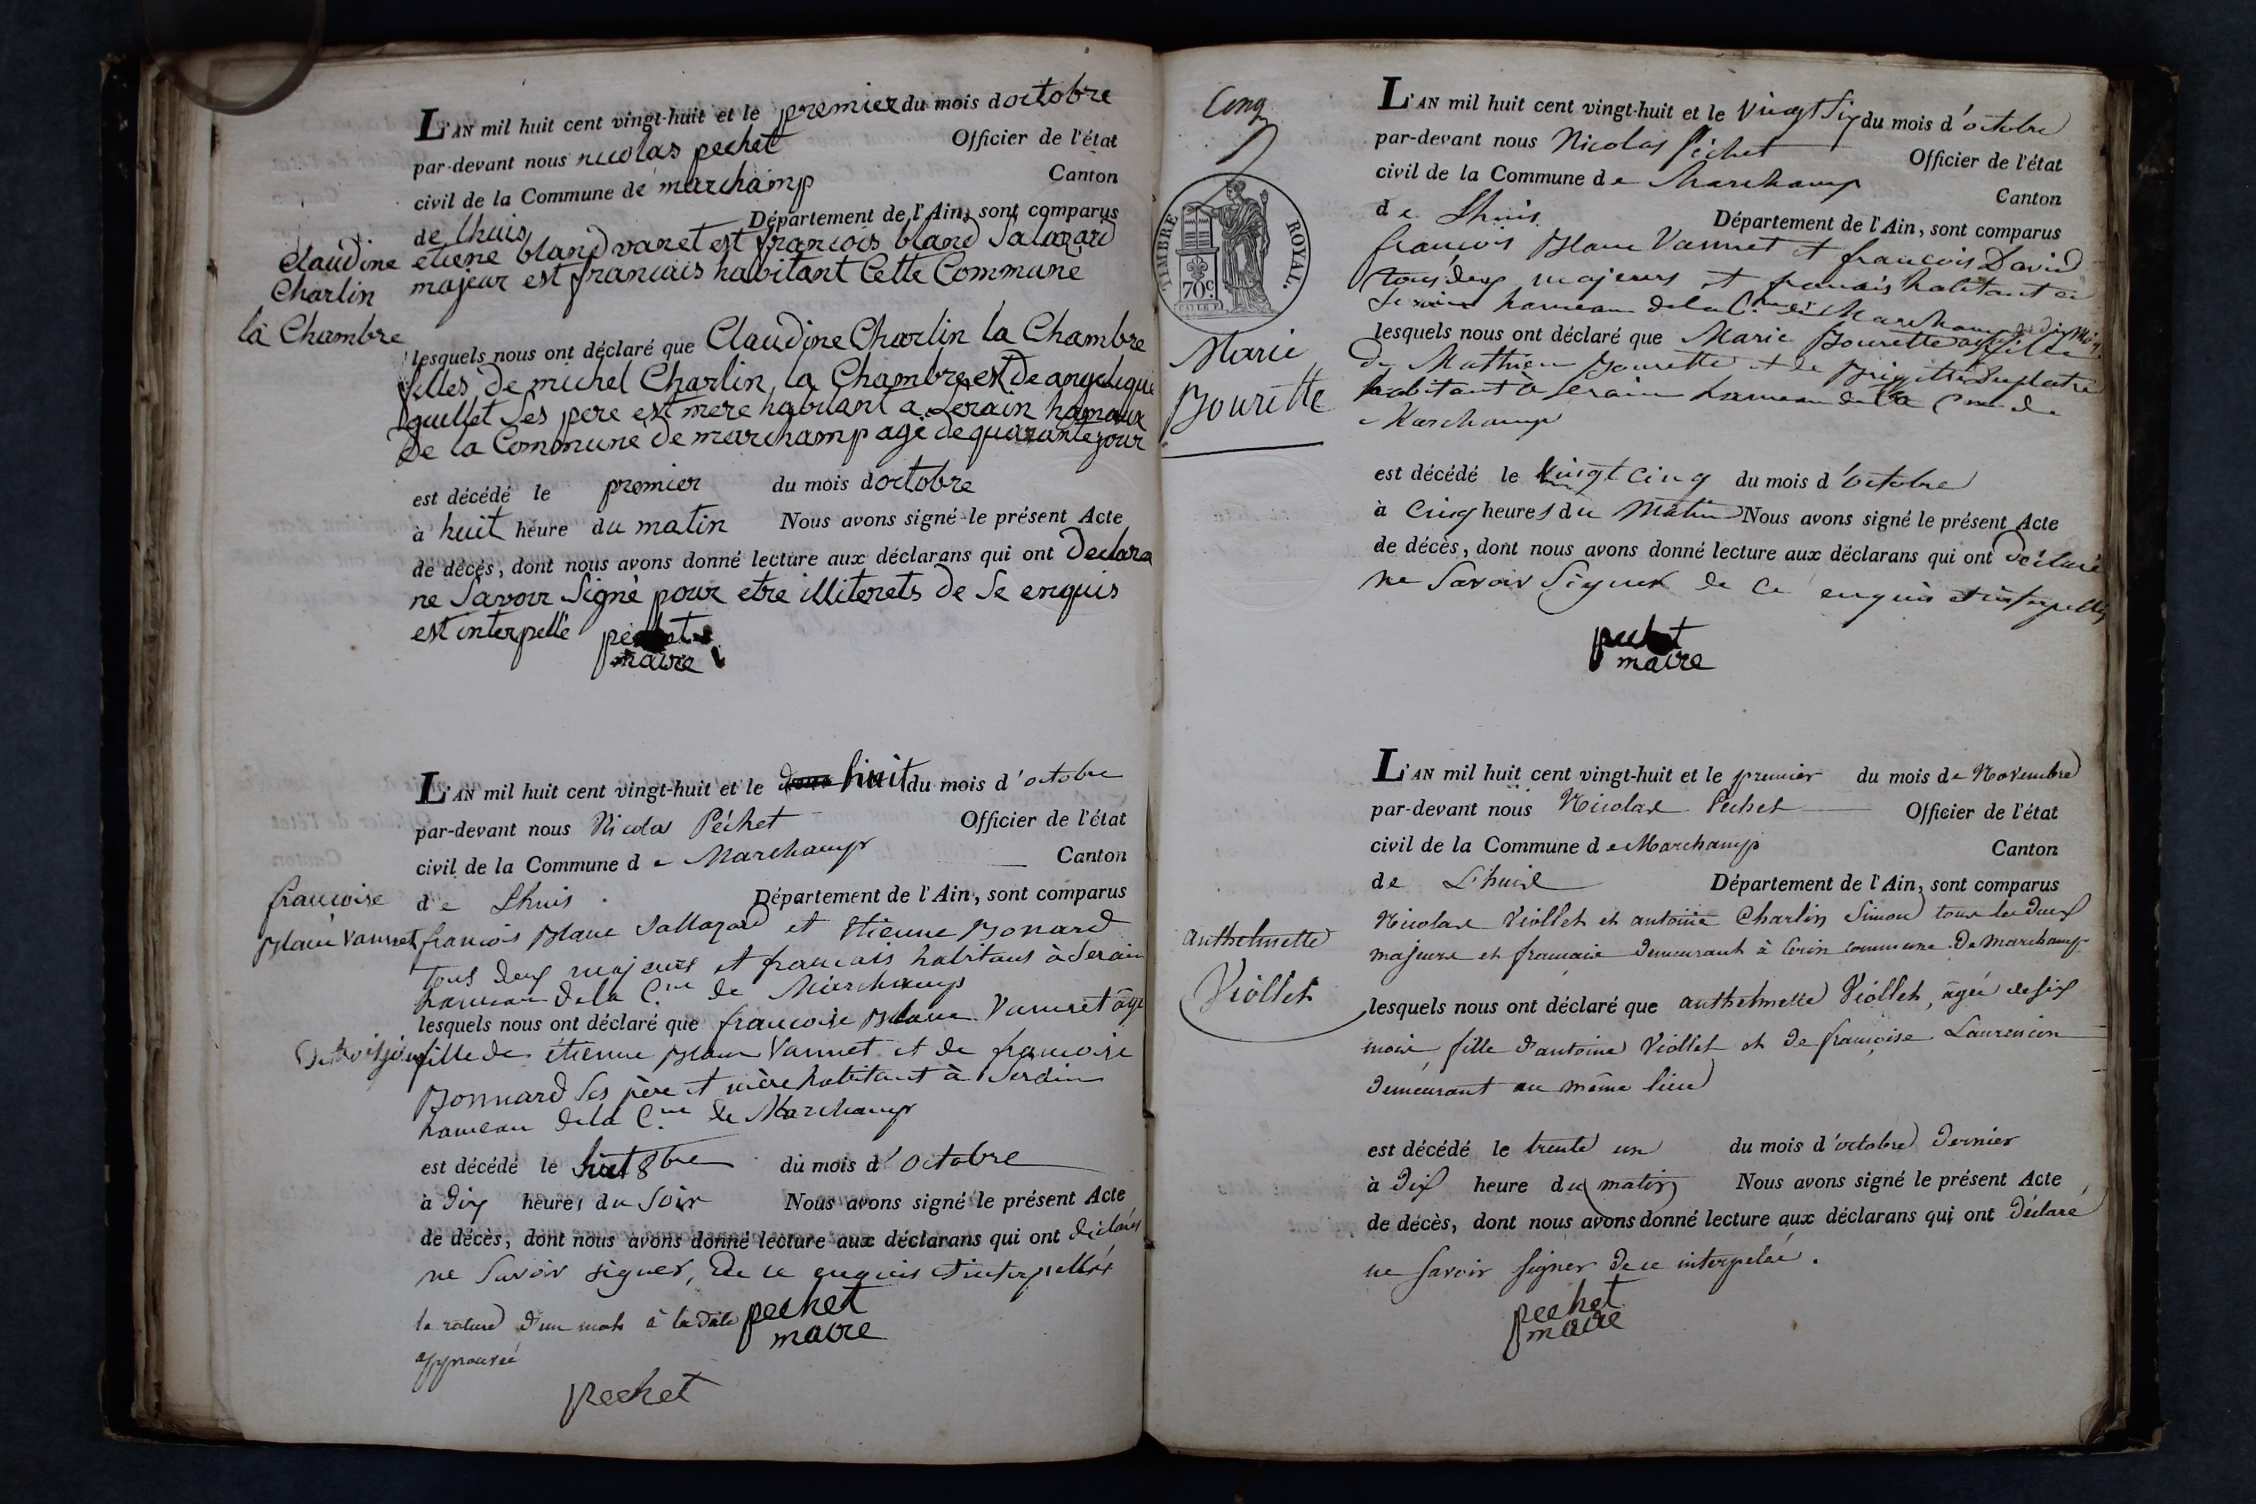 L'AN mil huit cent vingt-huit et le premier du mois doctobre
par-devant nous nicolas pechet Officier de l'état
civil de la Commune de marchamp Canton
de lhuis Département de l'Ain, sont comparus
Claudine
Charlin
la Chambre
etiene bland vanet est francois bland Salazard
majeur est francais habitant Cette Commune
lesquels nous ont déclaré que Claudine Charlin la Chambre
filles de michel Charlin la Chambre est De angelique
guillet Ses pere est mere habitant a Serain hamaux
De la Commune de marchamp agé de quarante jour
est décédé le premier du mois doctobre
à huit heure du matin Nous avons signé le présent Acte
de décès, dont nous avons donné lecture aux déclarans qui ont Declara
ne Savoir Signé pour etre illiterets de Se enquis
est interpellé pechet
maire
L'AN mil huit cent vingt-huit et le huit du mois d'octobre
par-devant nous Nicolas Péchet Officier de l'état
civil de la Commune de Marchamp Canton
de Lhuis Département de l'Ain, sont comparus
francoise
Blanc Vannet
francois Blanc Sallazard et Etienne Bonard
tous deux majeurs et francais habitans à Serain
hameau de la C.ne de Marchamp
lesquels nous ont déclaré que francoise Blanc Vannet âgé
De huit jours fille de étienne Blanc Vannet et de francoise
Bonnard Ses père et mère habitant à Serain
hameau de la C.ne de Marchamp
est décédé le huit 8bre du mois d'octobre
à dix heures du Soir Nous avons signé le présent Acte
de décès, dont nous avons donné lecture aux déclarans qui ont déclarés
ne Savoir signer, de ce enquis et interpellés
la rature d'un mot à la date pechet
maire
approuvée
pechet
Cinq
TIMBRE ROYAL.
70c
L'AN mil huit cent vingt-huit et le vingt Six du mois d'octobre
par-devant nous Nicolas Péchet Officier de l'état
civil de la Commune de Marchamp Canton
de Lhuis Département de l'Ain, sont comparus
francois Blanc Vannet et francois David
tous deux majeurs et francais habitant à
Serain hameau de la C.ne de Marchamp
Marie
Bourette
lesquels nous ont déclaré que Marie Bourette fille
de Mathieu Bourette et de Brigitte Duplatre
habitant à Serain hameau de la C.ne de
Marchamp
est décédé le vingt cinq du mois d'octobre
à Cinq heures du Matin Nous avons signé le présent Acte
de décès, dont nous avons donné lecture aux déclarans qui ont déclaré
ne Savoir Signer de ce enquis et interpellés
pechet
maire
L'AN mil huit cent vingt-huit et le premier du mois de Novembre
par-devant nous Nicolas Péchet Officier de l'état
civil de la Commune de Marchamp Canton
de L'huis Département de l'Ain, sont comparus
anthelmette
Viollet
Nicolas Viollet et antoine Charlin Simon tous les deux
majeurs et francais demeurant à Cerin commune De marchamp
lesquels nous ont déclaré que anthelmette Viollet, âgée de six
mois fille d'antoine Viollet et de françoise Laurencin
demeurant au même lieu
est décédé le trente un du mois d'octobre dernier
à dix heure du matin Nous avons signé le présent Acte
de décès, dont nous avons donné lecture aux déclarans qui ont déclaré
ne savoir signer de ce interpelé.
pechet
maire